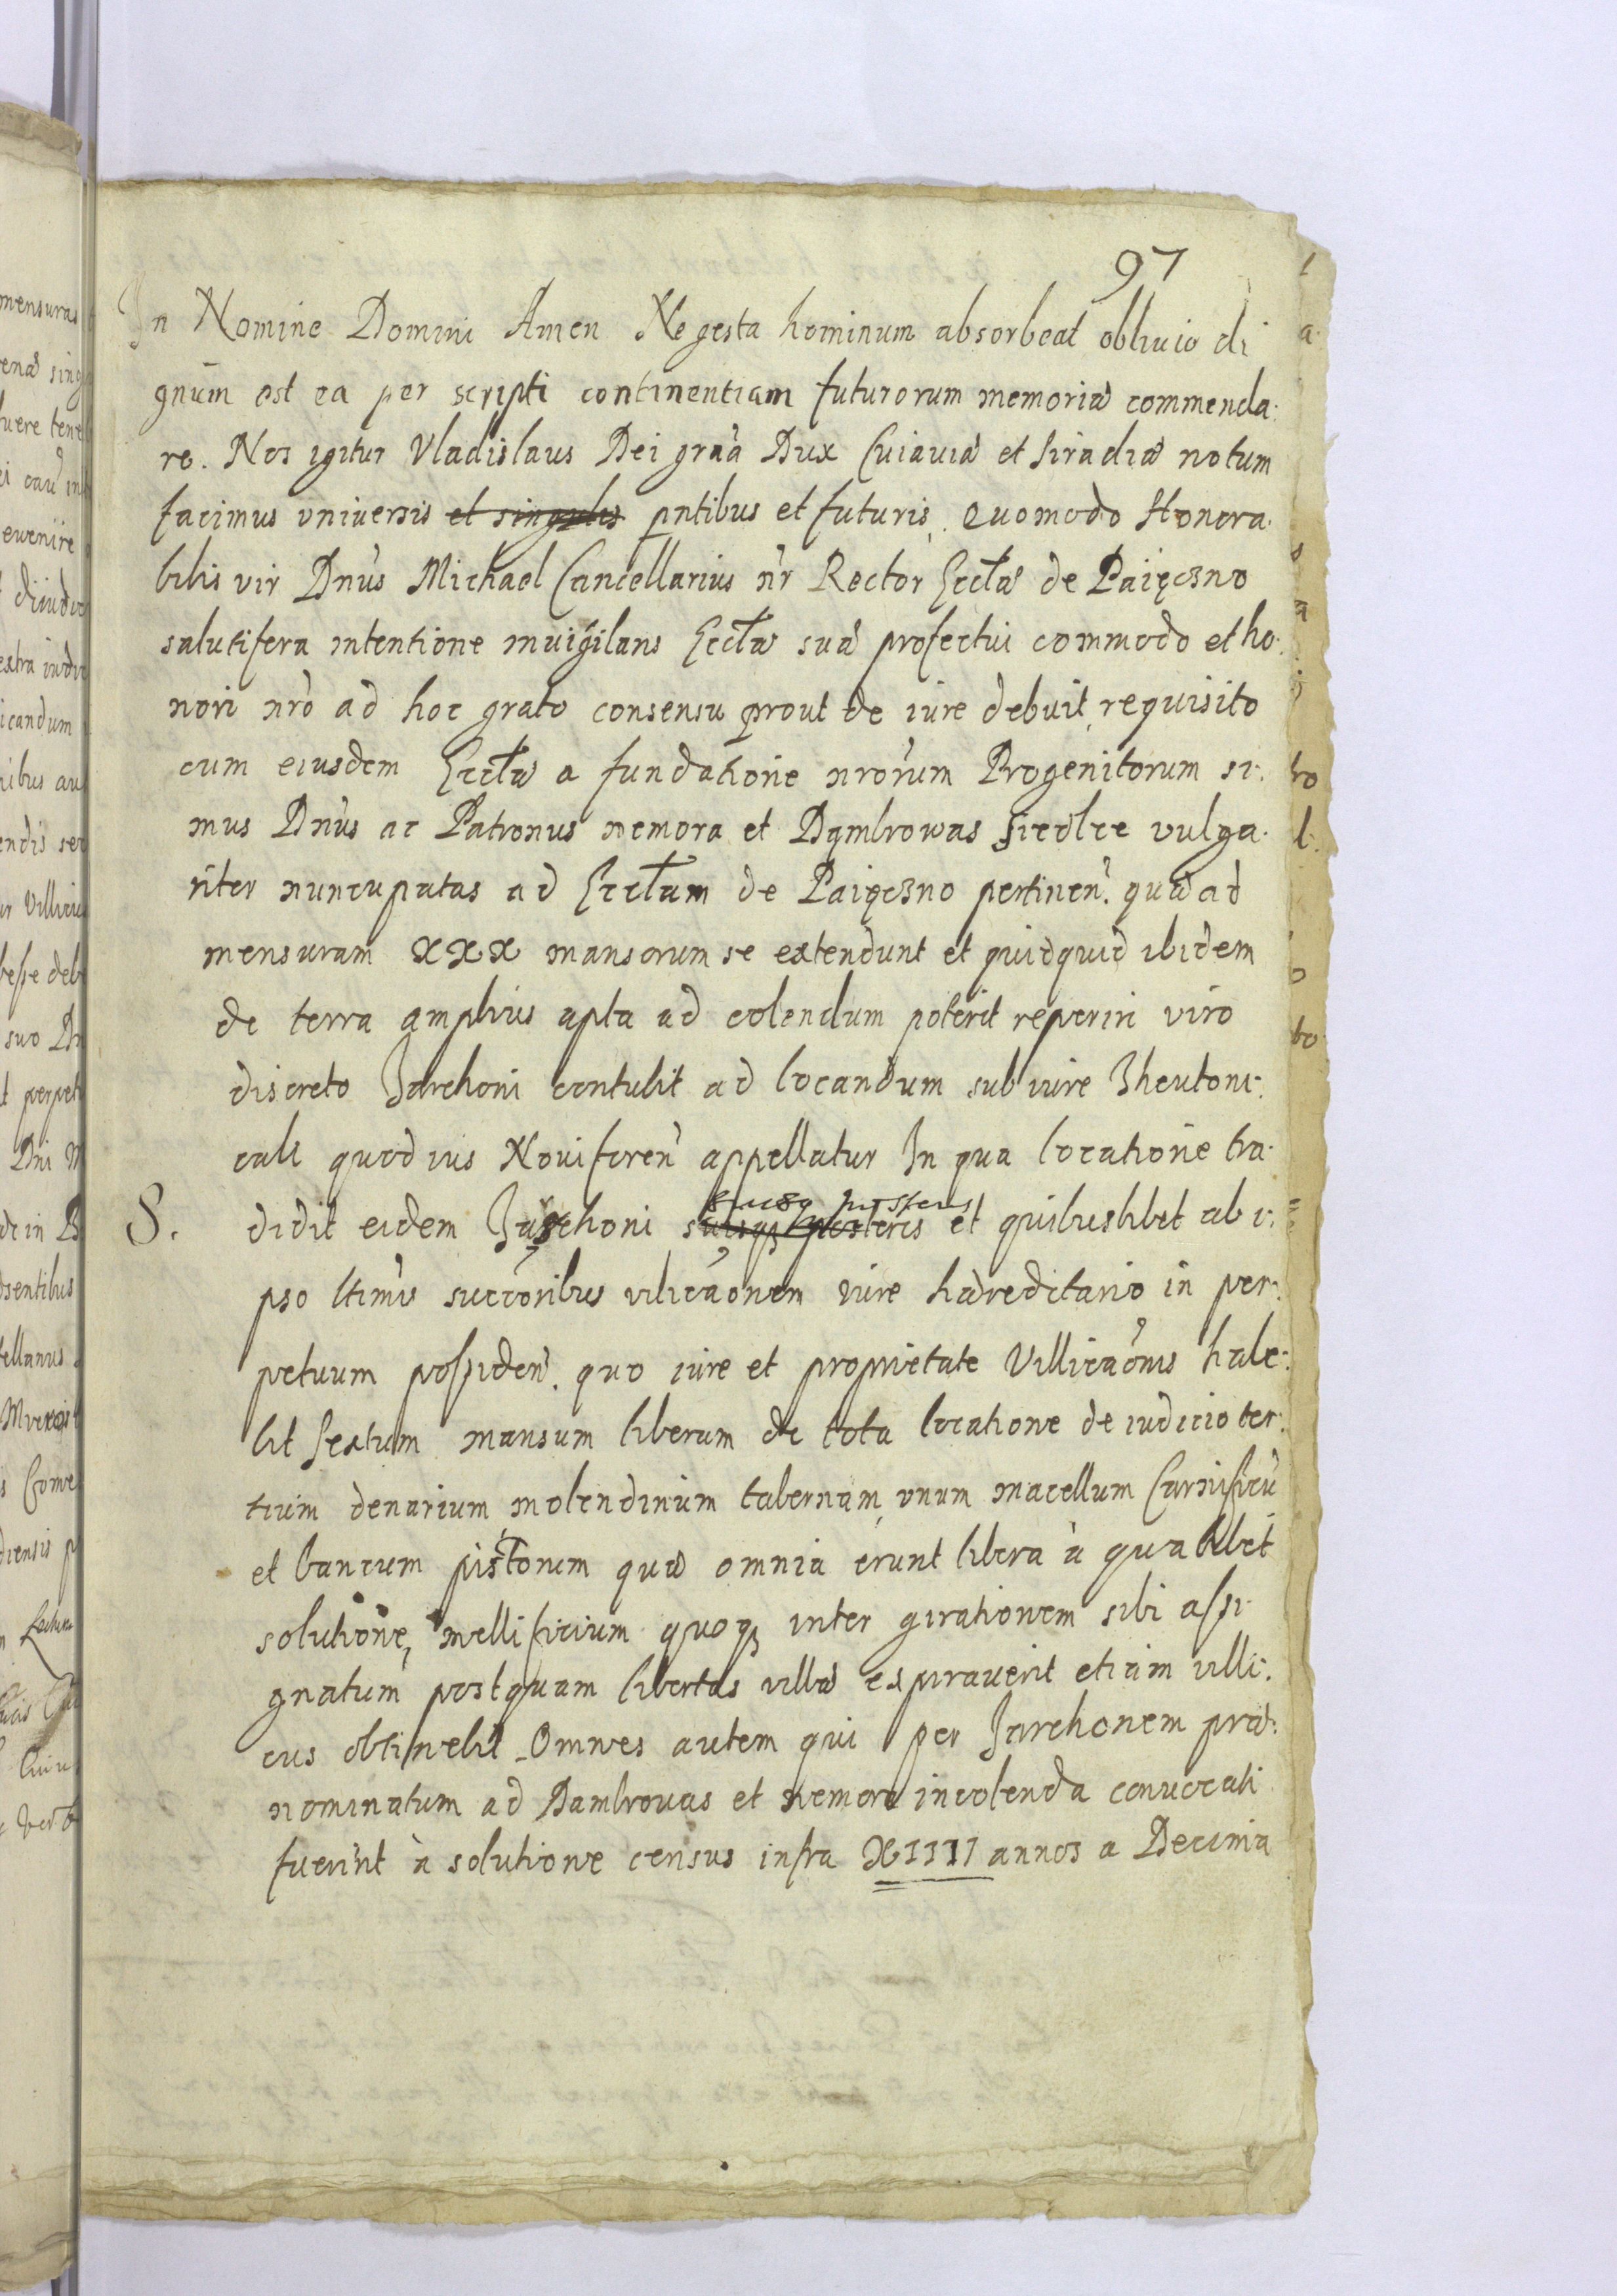 97
In Nomine Domini Amen Ne gesta hominum absorbeat obliuio di
gnum est ea per scripti continentiam futurorum memoriæ commenda.
re. Nos igitur Vladislaus Dei gra'a Dux Cuiauiæ et Siradiæ notum
facimus vniuersis et singulis pntibus et futuris, Quomodo Honora.
bilis vir Dn'us Michael Cancellarius n'r Rector Eccl'æ de Paięczno
salutifera intentione inuigilans Eccl'æ suæ profectui commodo et ho.
nori nr'o ad hoc grato consensu prout de iure debuit requisito
cum eiusdem Eccl'æ a fundatione nror'um Progenitorum si.
mus Dn'us ac Patronus nemora et Dąmbrowas Siedlce vulga.
riter nuncupatas ad Eccl'am de Paięczno pertinen'. quæ ad
mensuram XXX mansorum se extendunt et quidquid ibidem
de terra amplius apta ad colendum poterit reperiri viro
discreto Jarchoni contulit ad locandum sub iure Theutoni.
cali quod ius Nouiforen' appellatur In qua locatione tra.
S. didit eidem Jaschoni suisq posteris suisq posteris et quibuslibet ab i.
pso ltimis succ'oribus vilica'onem iure hæreditario in per.
petuum possiden'. quo iure et proprietate Villica'onis habe.
bit Sextum mansum liberum de tota locatione de iudicio ter.
tium denarium molendinum tabernam, vnum macellum Carnificu'
et bancum pistorum quæ omnia erunt libera à qualibet
solutione, mellificium quoq inter girationem sibi assi.
gnatum postquam libertas villæ expirauerit etiam villi.
cus obtinebit. Omnes autem qui per Jarchonem præ.
nominatum ad Dambrouas et nemora incolenda conuocati
fuerint à solutione census infra XIIII annos a Decima